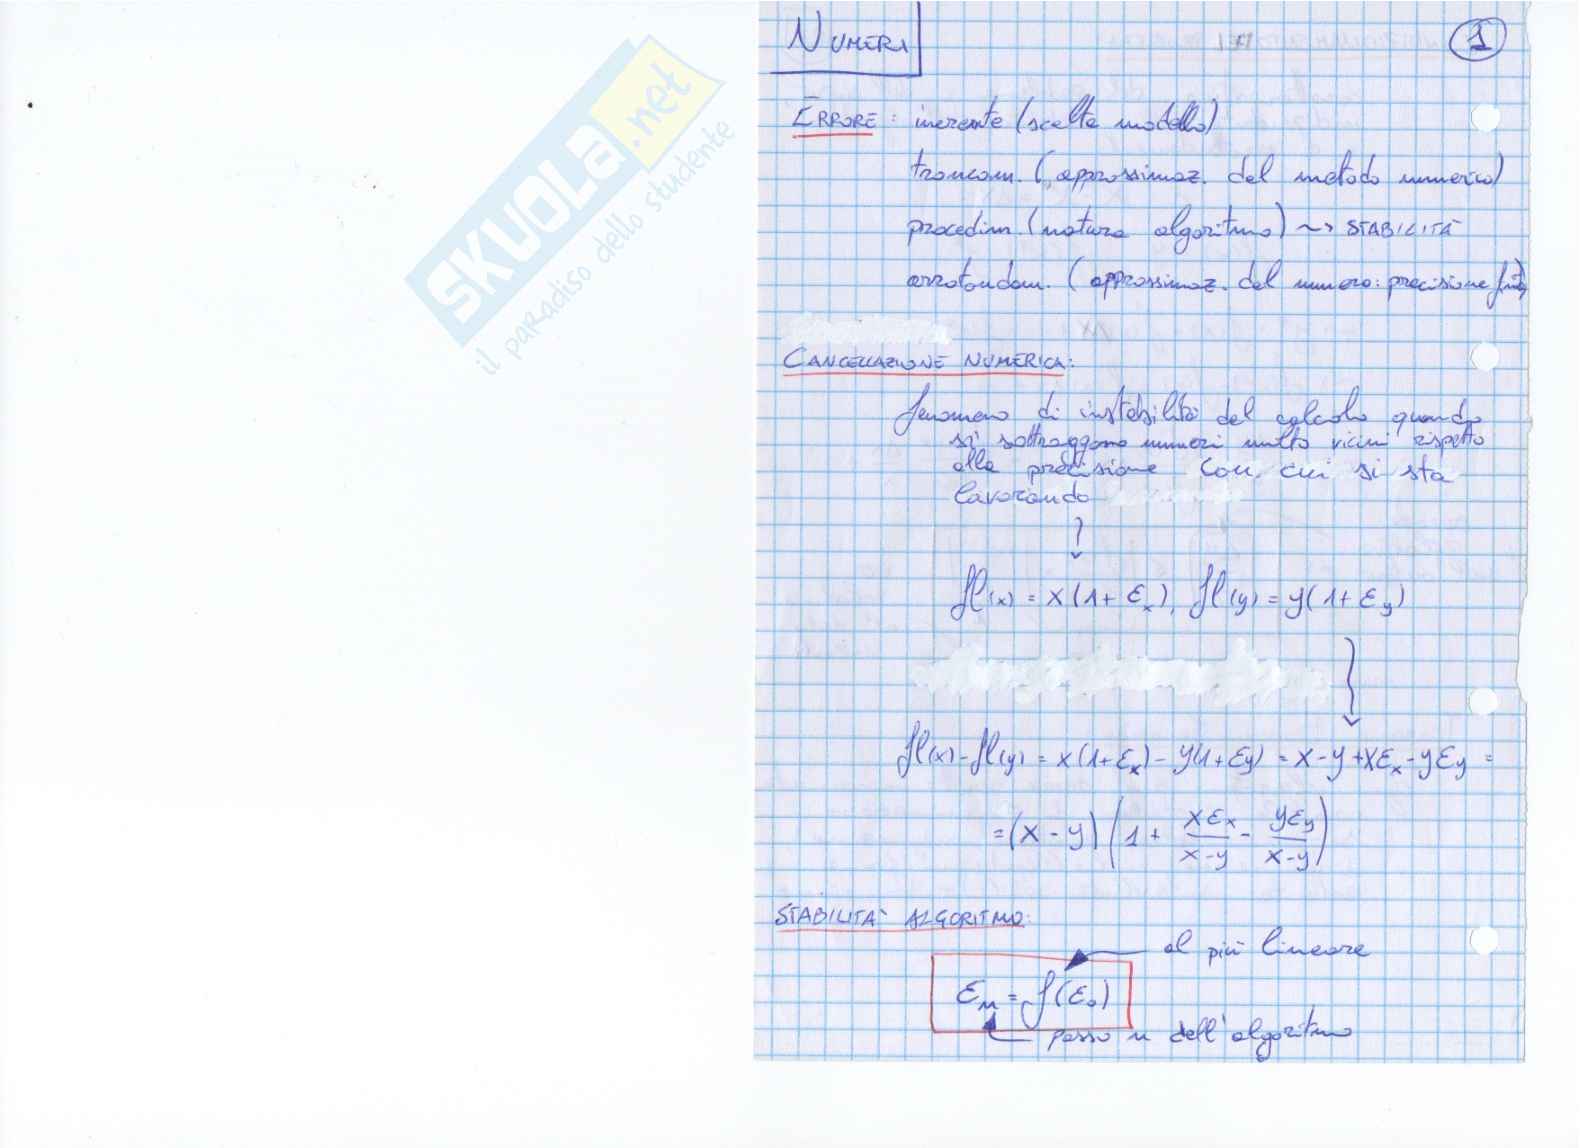 SKUOLA.net
il paradiso dello studente
NUMERI
1
ERRORE: inerente (scelta modello)
troncam. (approssimaz. del metodo numerico)
procedim. (natura algoritmo) ~> STABILITÀ
arrotondam. (approssimaz. del numero: precisione finita)
CANCELLAZIONE NUMERICA:
fenomeno di instabilità del calcolo quando
si sottraggono numeri molto vicini rispetto
alla precisione con cui si sta
lavorando
fl(x) = x(1+εx), fl(y) = y(1+εy)
fl(x)-fl(y) = x(1+εx) - y(1+εy) = x-y+xεx-yεy =
= (x-y)(1 + xεx/(x-y) - yεy/(x-y))
STABILITÀ ALGORITMO:
al più lineare
εn = f(ε0)
passo n dell'algoritmo